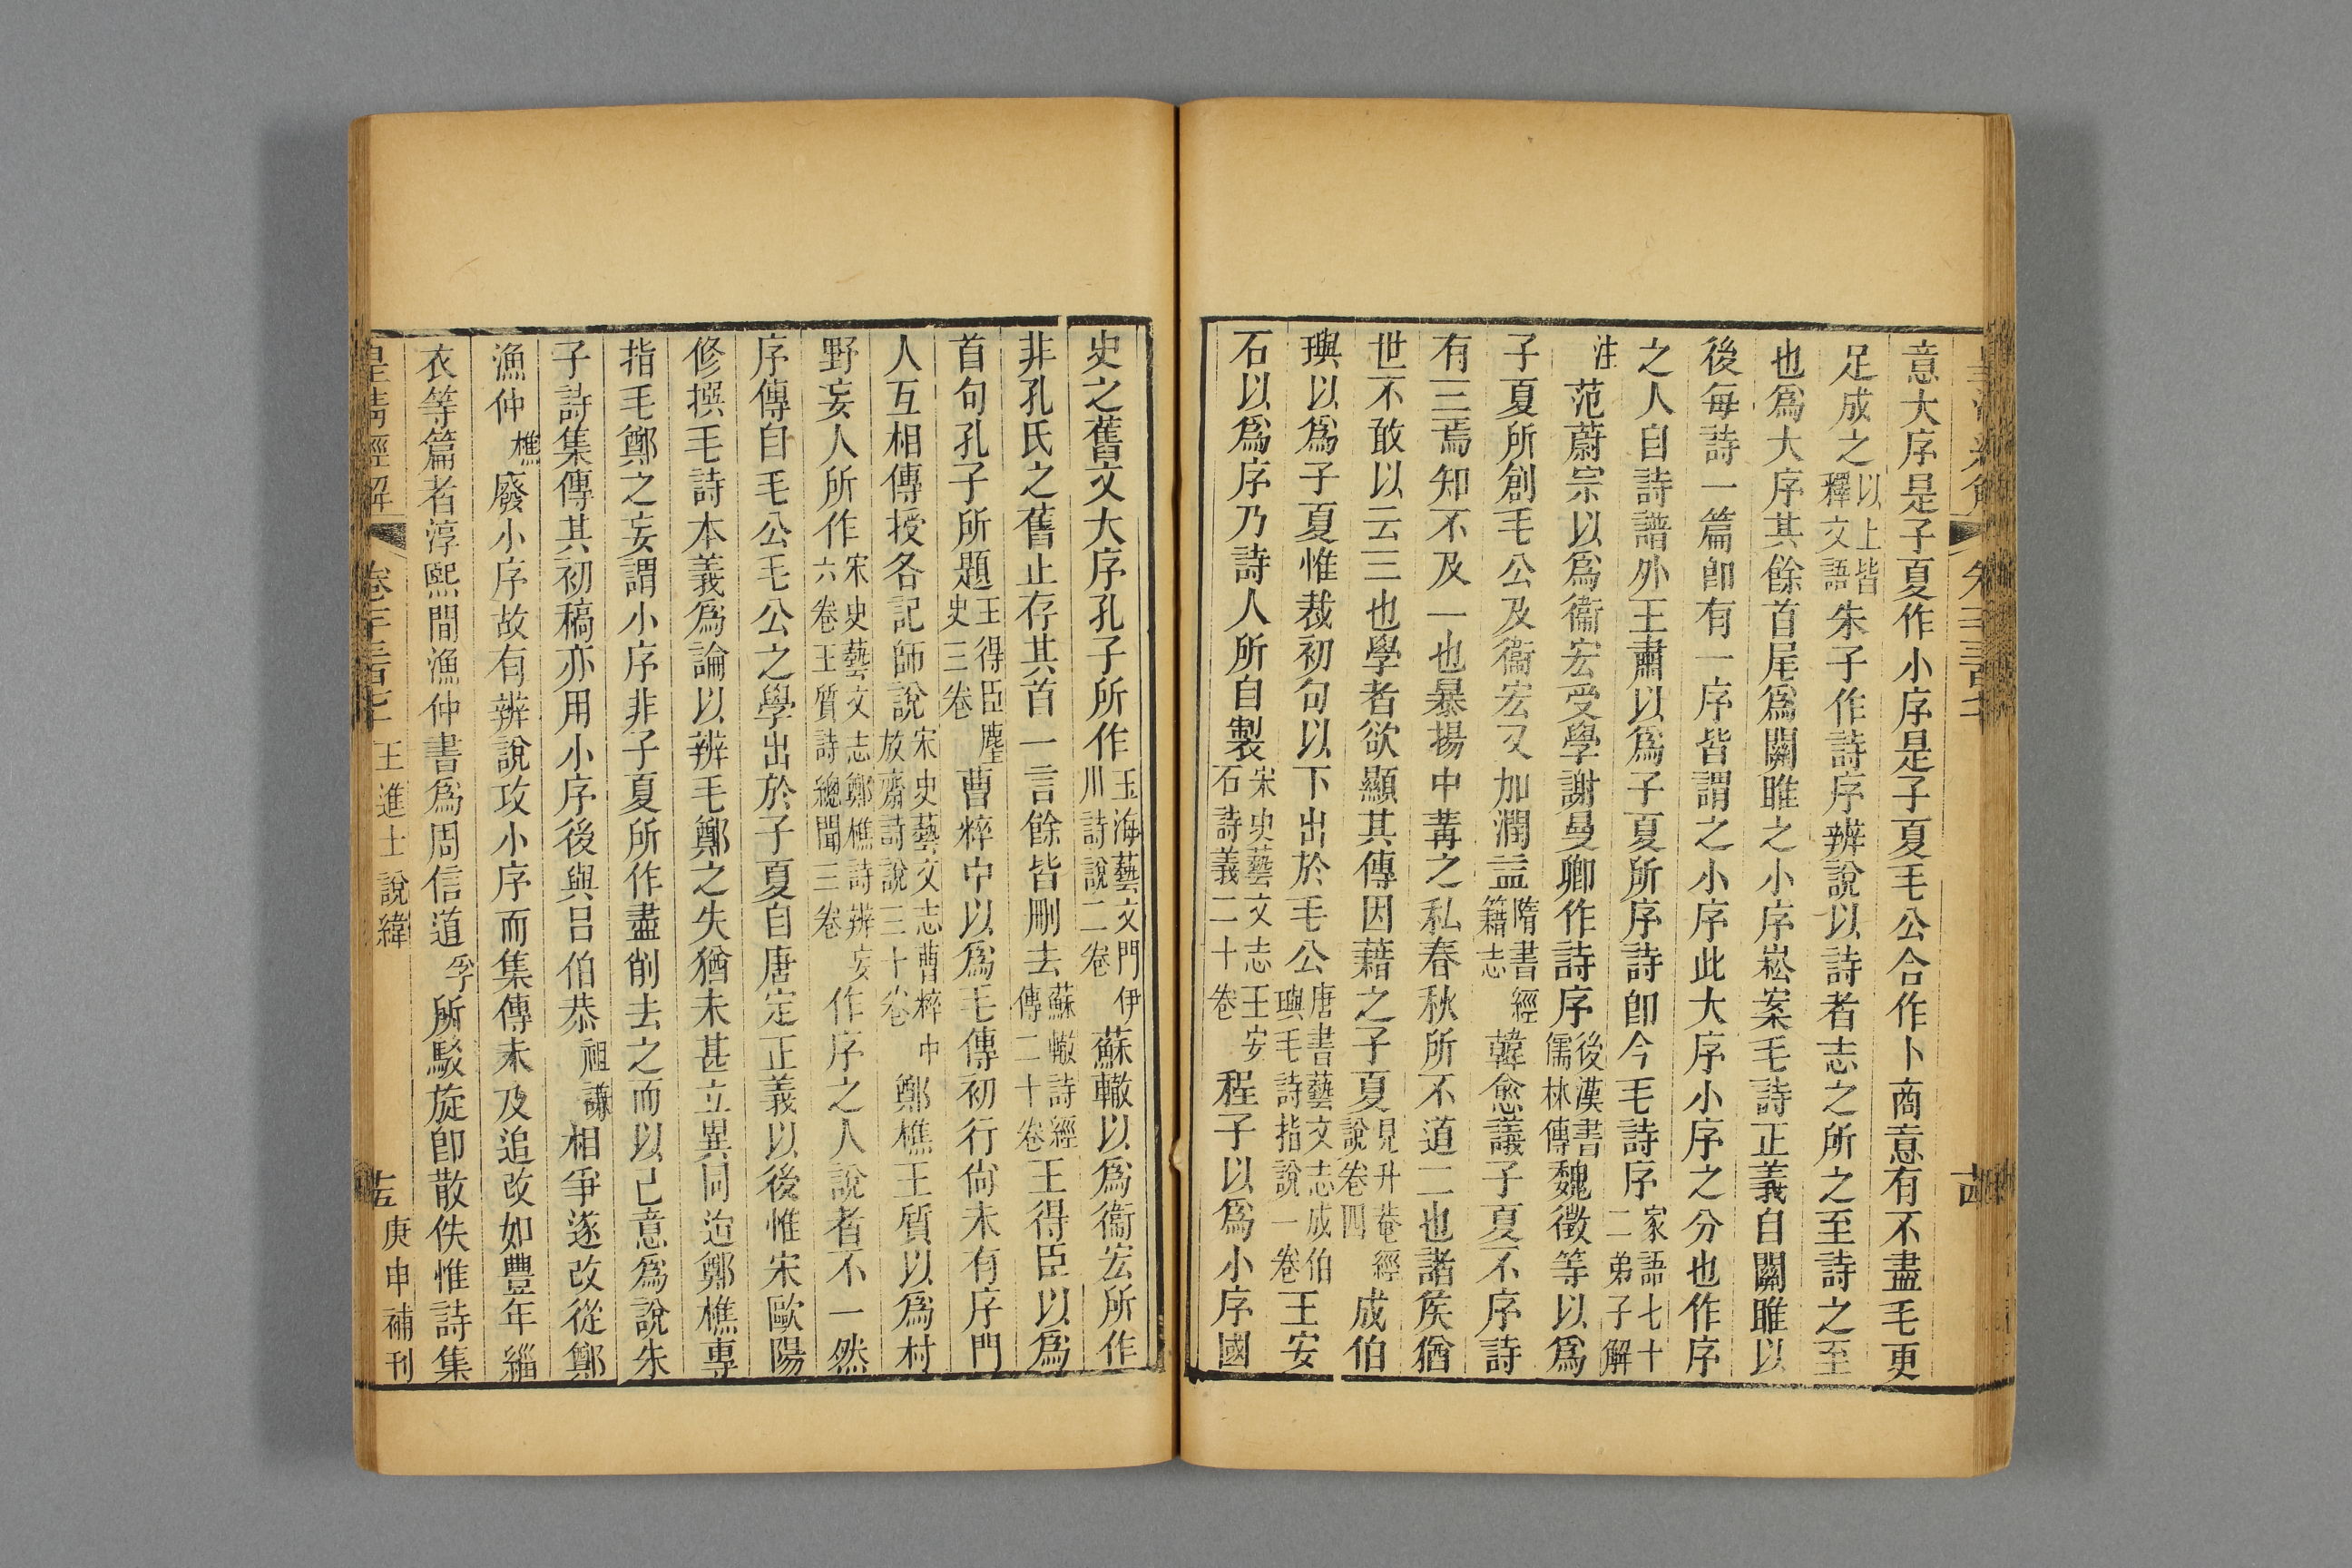 意大序是子夏作小序是子夏毛公合作卜商意有不盡毛更
足成之以上皆釋文語朱子作詩序辨說以詩者志之所之至詩之至
也爲大序其餘首尾爲關雎之小序崧案毛詩正義自關雎以
後每詩一篇卽有一序皆謂之小序此大序小序之分也作序
之人自詩譜外王肅以爲子夏所序詩卽今毛詩序家語七十二弟子解
注范蔚宗以爲衞宏受學謝曼卿作詩序後漢書儒林傳魏徵等以爲
子夏所創毛公及衞宏又加潤益隋書經籍志韓愈議子夏不序詩
有三焉知不及一也暴揚中冓之私春秋所不道二也諸矦猶
世不敢以云三也學者欲顯其傳因藉之子夏見升菴經說卷四成伯
璵以爲子夏惟裁初句以下出於毛公唐書藝文志成伯璵毛詩指說一卷王安
石以爲序乃詩人所自製宋史藝文志王安石詩義二十卷程子以爲小序國
史之舊文大序孔子所作玉海藝文門伊川詩說二卷蘇轍以爲衞宏所作
非孔氏之舊止存其首一言餘皆刪去蘇轍詩經傳二十卷王得臣以爲
首句孔子所題王得臣麈史三卷曹粹中以爲毛傳初行尙未有序門
人互相傳授各記師說宋史藝文志曹粹中放齋詩說三十卷鄭樵王質以爲村
野妄人所作宋史藝文志鄭樵詩辨妄六卷王質詩總聞三卷作序之人說者不一然
序傳自毛公毛公之學出於子夏自唐定正義以後惟宋歐陽
修撰毛詩本義爲論以辨毛鄭之失猶未甚立異同迨鄭樵專
指毛鄭之妄謂小序非子夏所作盡削去之而以己意爲說朱
子詩集傳其初稿亦用小序後與呂伯恭祖謙相爭遂改從鄭
漁仲樵廢小序故有辨說攻小序而集傳未及追改如豐年緇
衣等篇者淳熙間漁仲書爲周信道孚所駁旋卽散佚惟詩集
皇淸經解
卷
王進士說緯
庚申補刊